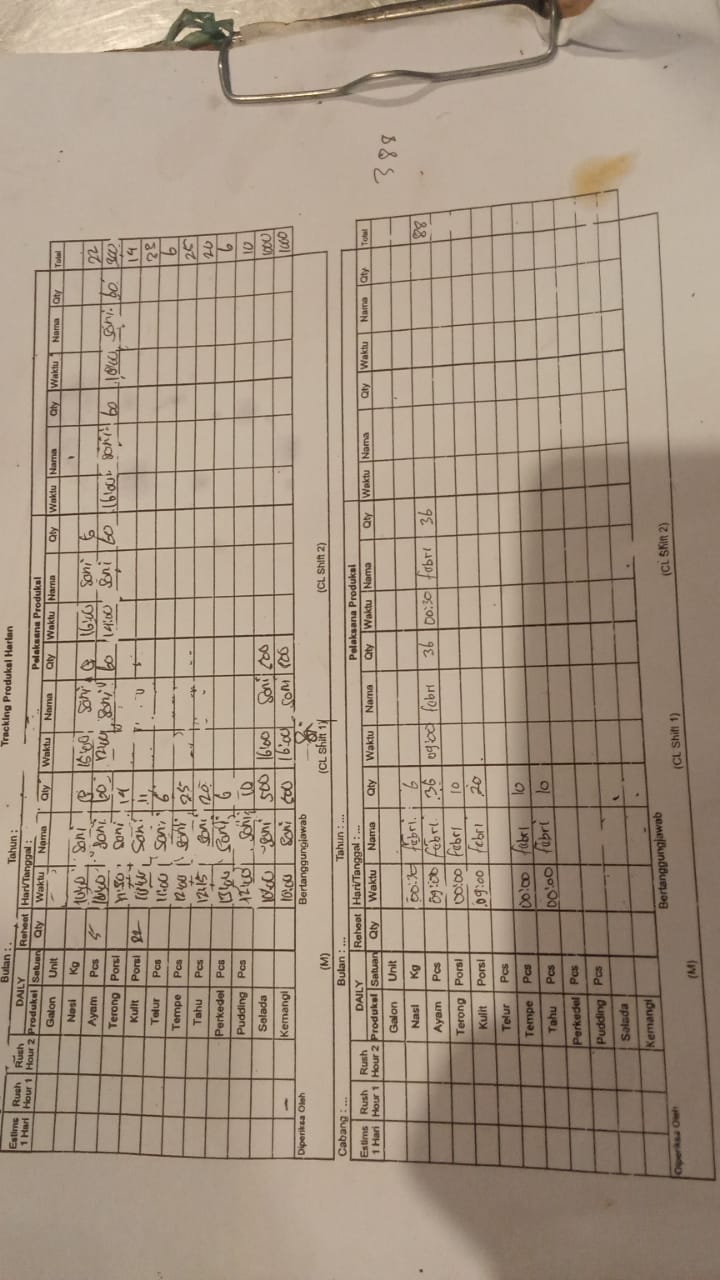 Tracking Produksi Harian
Bulan : Tahun :
Estims 1 Hari Rush Hour 1 Rush Hour 2 DAILY Produksi Satuan Reheat Qty Hari/Tanggal : Pelaksana Produksi
Waktu Nama Qty Waktu Nama Qty Waktu Nama Qty Waktu Nama Qty Waktu Nama Qty Total
Galon Unit
Nasi Kg Soni 16:00 Soni 16:00 Soni 22
Ayam Pcs 5 Soni 60 Soni 60 14:00 Soni 60 16:00 Soni 60 Soni 60 300
Terong Porsi 11:30 Soni 14 14
Kulit Porsi 22 Soni 11
Telur Pcs 11:00 Soni 6 6
Tempe Pcs 12:00 Soni 25 25
Tahu Pcs 12:15 Soni 20 20
Perkedel Pcs Soni 6 6
Pudding Pcs 12:00 Soni 10 10
Selada 10:00 Soni 500 16:00 Soni 500 1000
Kemangi 10:00 Soni 16:00 Soni
Diperiksa Oleh Bertanggungjawab
(M) (CL Shift 1) (CL Shift 2)
388
Cabang : ... Bulan : ... Tahun : ...
Estims 1 Hari Rush Hour 1 Rush Hour 2 DAILY Produksi Satuan Reheat Qty Hari/Tanggal : ... Pelaksana Produksi
Waktu Nama Qty Waktu Nama Qty Waktu Nama Qty Waktu Nama Qty Waktu Nama Qty Total
Galon Unit
Nasi Kg 00:30 febri 6
Ayam Pcs 09:00 febri 36 09:00 febri 36 00:30 febri 36 88
Terong Porsi 00:00 febri 10
Kulit Porsi 09:00 febri 20
Telur Pcs
Tempe Pcs 00:00 febri 10
Tahu Pcs 00:00 febri 10
Perkedel Pcs
Pudding Pcs
Selada
Kemangi
Diperiksa Oleh Bertanggungjawab
(M) (CL Shift 1) (CL Shift 2)